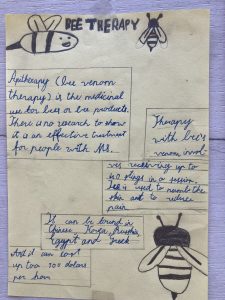 BEE THERAPY
Apitherapy (bee venom
therapy) is the medicinal
use for bees or bee products.
There is no research to show
it is an effective treatment
for people with MS.
Therapy
with bee's
venom invol-
ves receiving up to
40 stings in a session.
Ice is used to numb the
skin and to reduce
pain.
It can be found in
Chinese, Korea, Russia,
Egypt and Greek
And it can cost
up too 300 dollars
per hour